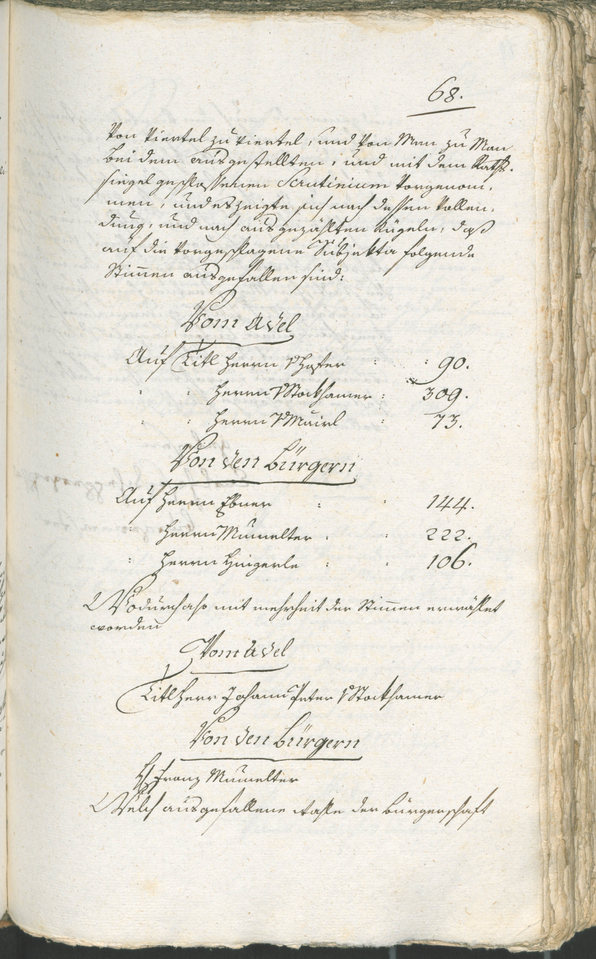 68.
Von Viertel zu Viertel, und von Man zu Man
bei dem ausgestellten, und mit dem Raths-
siegel geschlossenen Scrutinium vorgenom-
men, und es zeigte sich nach dessen Vollen-
dung, und nach ausgezählten Kugeln, daß
auf die vorgeschlagene Subjekta folgende
Stimmen ausgefallen sind:
Vom Adel
Auf Titl Herrn v Hofer : : 90.
" " Herrn v Stockhamer : 309.
" " Herrn v Mairl : 73.
Von den Bürgern
Auf Herrn Ebner : : 144.
" Herrn Mumelter : : 222.
" Herrn Hingerle : : 106.
Wodurch also mit mehrheit der Stimen erwählet
worden
Vom Adel
Titl Herr Johann Peter v Stockhamer
Von den Bürgern
H Franz Mumelter
Welch ausgefallene Wahle der Bürgerschaft